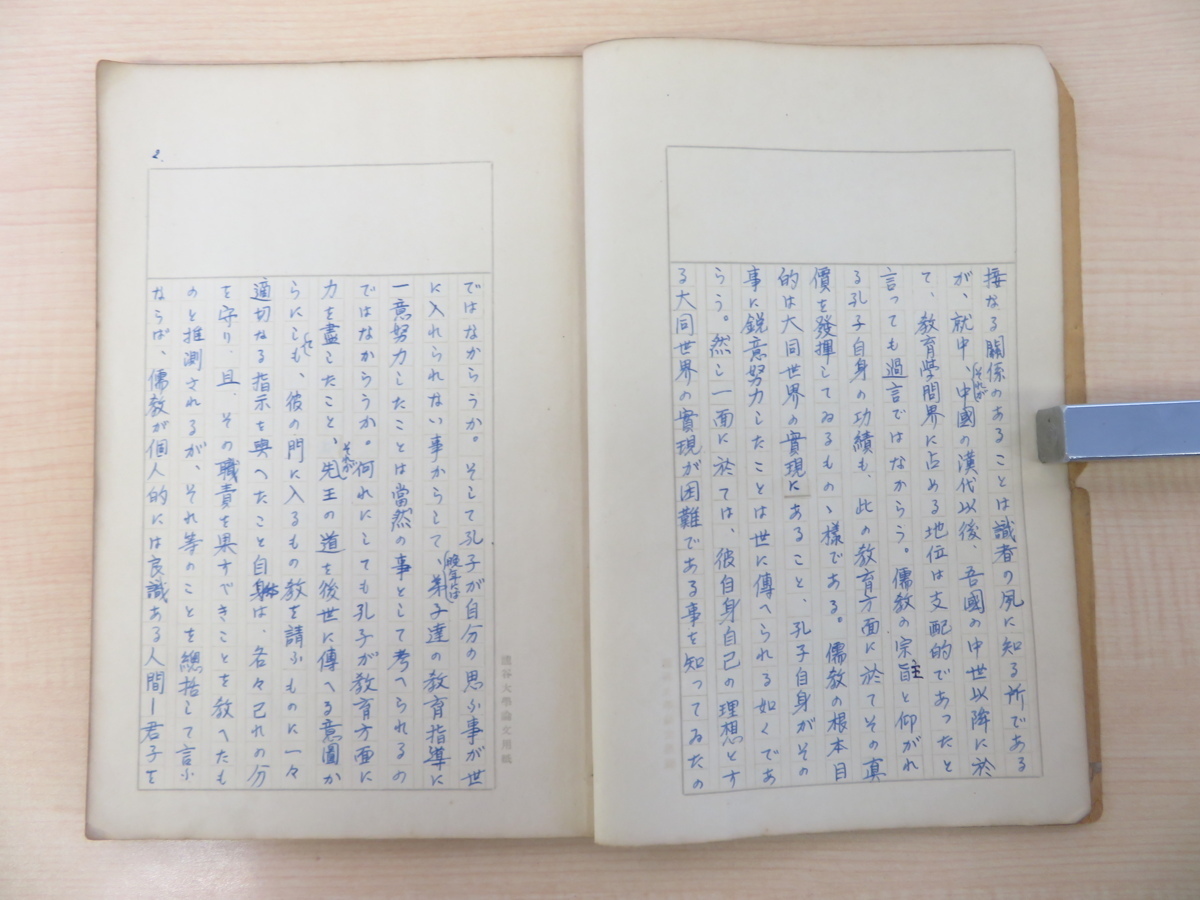 接なる關係のあることは識者の夙に知る所である
が、就中、中國の漢代以後、吾國の中世以降に於
て、教育學問界に占める地位は支配的であったと
言っても過言ではなからう。儒教の宗主と仰がれ
る孔子自身の功績も、此の教育方面に於てその真
價を發揮してゐるものゝ樣である。儒教の根本目
的は大同世界の實現にあること、孔子自身がその
事に鋭意努力したことは世に傳へられる如くであ
らう。然し一面に於ては、彼自身自己の理想とす
る大同世界の實現が困難である事を知ってゐたの
2.
ではなからうか。そして孔子が自分の思ふ事が世
に入れられない事からして、晩年には弟子達の教育指導に
一意努力したことは當然の事として考へられるの
ではなからうか。何れにしても孔子が教育方面に
力を盡したこと、それが先王の道を後世に傳へる意圖か
らにしても、彼の門に入るもの教を請ふものに一々
適切なる指示を與へたこと自身は、各々己れの分
を守り、且、その職責を果すべきことを教へたも
のと推測されるが、それ等のことを總括して言ふ
ならば、儒教が個人的には良識ある人間ー君子を
龍谷大學論文用紙